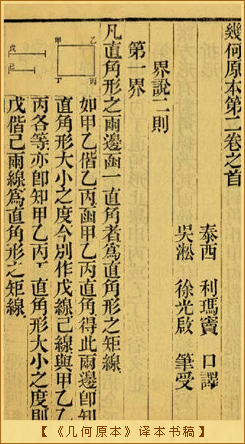 幾何原本第二卷之首
泰西 利瑪竇 口譯
吳淞 徐光啟 筆受
界說二則
第一界
凡直角形之兩邊函一直角者爲直角形之矩線
乙
甲
丙
丁
如甲乙偕乙丙函甲乙丙直角得此兩邊卽知
直角形大小之度今別作戊線己線與甲乙乙
丙各等亦卽知甲乙丙丁直角形大小之度則
戊
己
戊偕己兩線爲直角形之矩線
【《几何原本》译本书稿】